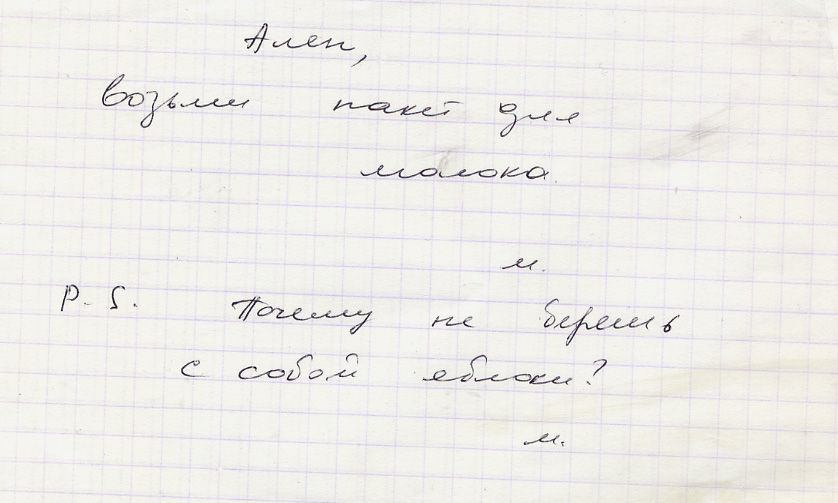 Ален,
возьми пакет для
молока.
м.
P.S. Почему не берешь
с собой яблоки?
м.